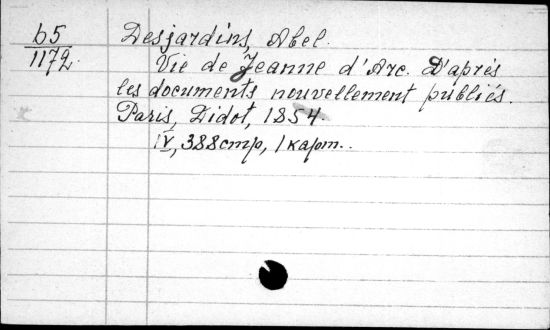 b5
1172
Desjardins, Abel.
Vie de Jeanne d'Arc. D'après
les documents nouvellement publiés.
Paris, Didot, 1854.
IV, 388стр, 1карт..